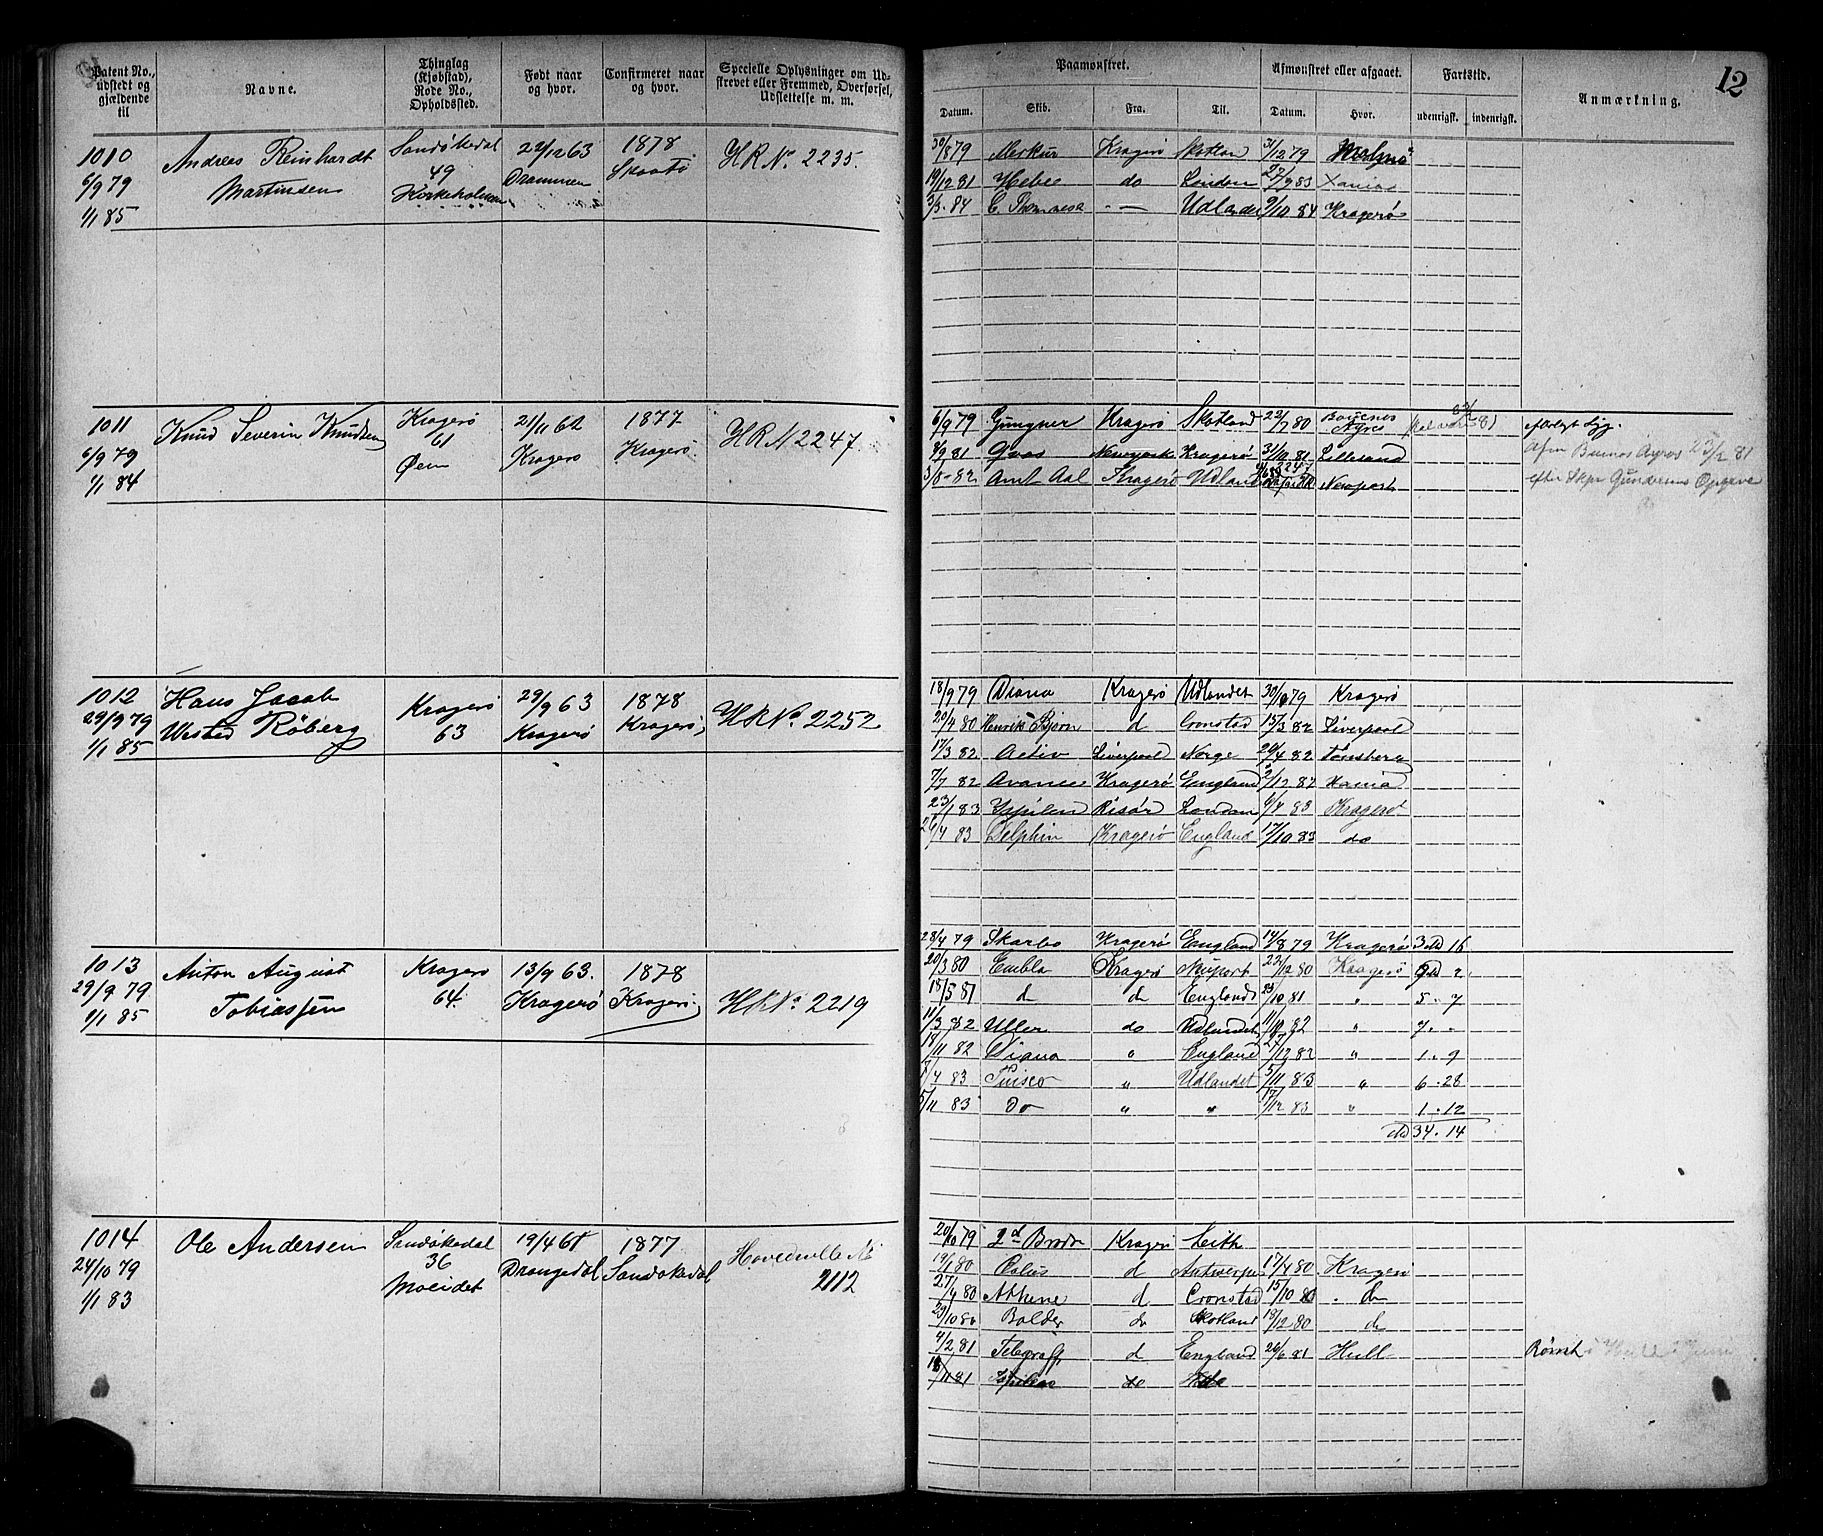 12
Patent No., udstedt og gjældende til
Navne.
Thinglag (Kjøbstad), Rode No., Opholdssted.
Født naar og hvor.
Confirmeret naar og hvor.
Specielle Oplysninger om Udskrevet eller Fremmed, Overførsel, Udslettelse m. m.
Paamønstret.
Afmønstret eller afgaaet.
Fartstid.
Anmærkning.
Datum. Skib. Fra. Til. Datum. Hvor. udenrigsk. indenrigsk.
1010 Andreas Reinhardt Sandøkedal 22/12 63 1878 HR No. 2235.
6/9 79 Martinsen 49 Drammen Skaatø
1/1 85 Kirkeholmen
30/8 79 Merkur Kragerø Skotlan 31/12 79
19/12 81 Hebe do London 27/9 83 Xania
3/3. 84 Udlandet 9/10 84 Kragerø
1011 Knud Severin Knudsen Kragerø 21/1 62 1877 HR N 2247.
6/9 79 61 Kragerø Kragerø.
1/1 84 Øen
6/9 79 Gungner Kragerø Skotland 22/7 80 Bouenos Ayres
9/9 81 Newyork Kragerø 31/10 81 Lillesand Afm Buenos Ayres 23/2 81
3/8-82 Amt Aal Kragerø Udland Newport efter Skpr Gundersens Opgave
1012 Hans Jacob Kragerø 29/9 63 1878 HR No. 2252
29/9 79 Wested Røberg 63 Kragerø Kragerø;
1/1 85
18/9 79 Diana Kragerø Udlandet 30/9 79 Kragerø
29/4 80 Henrik Bjørn d Cronstad 15/3 82 Liverpool
17/3 82. Activ Liverpool Norge 29/4 82 Tønsberg
7/7 82 Avance Kragerø England 2/12 82 Xania
23/1 83 Ypsilon Risør London 6/4 83 Kragerø
26/4 83 Delphin Kragerø England 17/10 83 do
1013 Anton August Kragerø 13/9 63. 1878 HR No. 2219
29/9 79 Tobiassen 64. Kragerø Kragerø.
1/1 85
28/4 79 Skarbo Kragerø England 14/8 79 Kragerø 3 Md 16
20/3 80 Embla Kragerø Nuport 22/12 80 Kragerø 9 Md 2
18/5 81 d d England 23/10 81 " 5. 7
11/3 82 Uller do Udlandet 11/10 82 " 7. -
18/11 82 Diana " England 27/12 83 " 1. 9
7/4 83 Tuisco " Udlandet 5/11 83 " 6. 28
5/11 83 Do " " 17/12 83 " 1. 12
Md 34. 14
1014 Ole Andersen Sandøkedal 19/4 61 1877 Hovedrulle No
24/10 79 36 Drangedal Sandøkedal 2112
1/1 83 Moeidet
20/10 79 2d Brødr Kragerø Leith
19/1 80 Polus d Antwerpe 17/4 80 Kragerø
27/4 80 Athene d Cronstad 15/10 80 do
29/10 80 Balder do Skotland 18/12 80 do
4/2 81 Telegraff d England 26/6 81 Hull Rømt i Hull i Juni
18/11 81 Ypsilon do